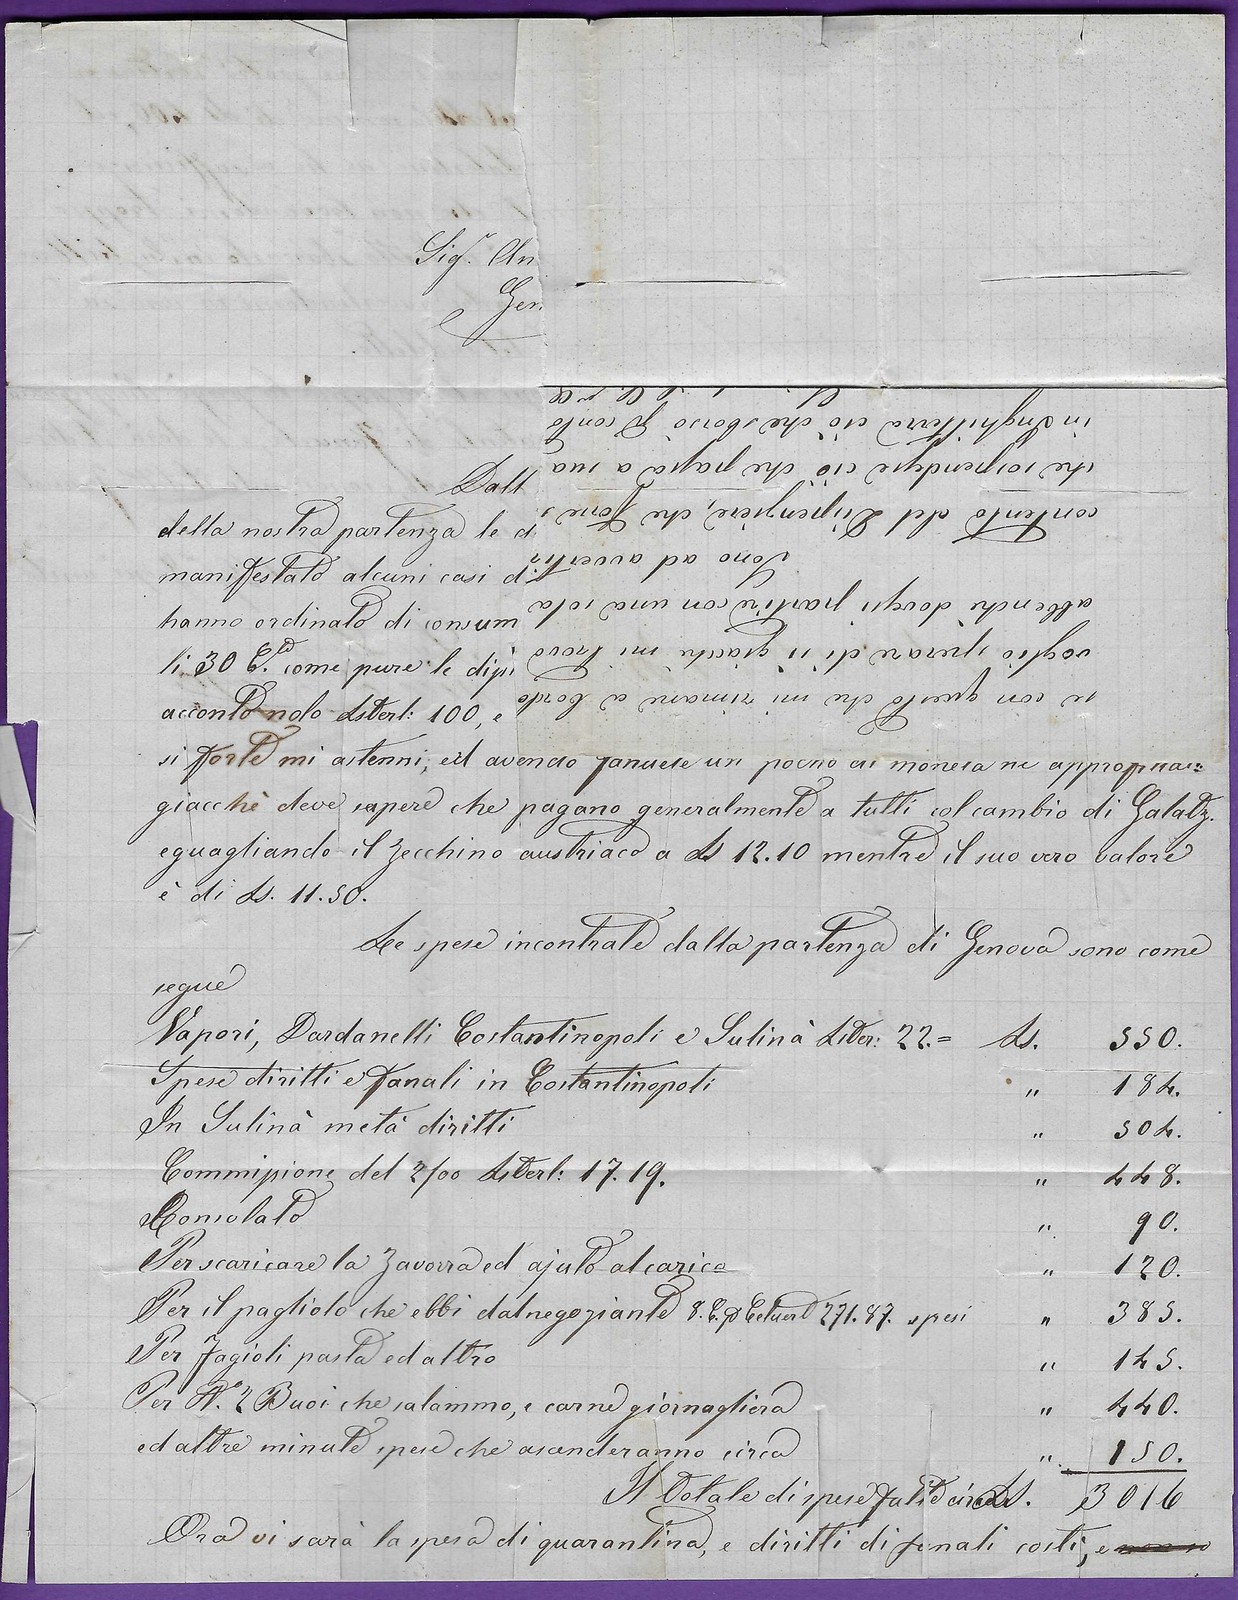 Sig.r An
Gen
Dall
della nostra partenza le d
manifestato alcuni casi d
hanno ordinato di consum
li 30 C.to come pure le dipi
acconto nolo Lsterl: 100, e
si forte mi astenni, ed avendo
giacchè deve sapere che pagano generalmente a tutti col cambio di Galatz.
eguagliando il zecchino austriaco a Ls 12.10 mentre il suo vero valore
è di Ls. 11.50.
Le spese incontrate dalla partenza di Genova sono come
segue
Vapori, Dardanelli Costantinopoli e Sulinà Lster: 22.= Ls. 550.
Spese diritti e fanali in Costantinopoli " 184.
In Sulinà metà diritti " 504.
Commissione del 2/00 Lsterl: 17.19. " 448.
Consolato " 90.
Per scaricare la zavorra ed ajuto al carico " 120.
Per il pagliolo che ebbi dal negoziante 271.87. spesi " 385.
Per fagioli pasta ed altro " 145.
Per N.o 2 Buoi che salammo, e carne giornagliera " 440.
ed altre minute spese che ascenderanno circa " 150.
Il totale di spese fatte circa Ls. 3016
Ora vi sarà la spesa di quarantina, e diritti di fanali costì, e
se con questo che mi rimane a bordo
voglio sperare di sì giacchè mi trovo
abbenchè dovessi partire con una sola
Sono ad avvertir
contento del Dispensiere, che forse s
che sospendesse ciò che pagava a sua
in Inghilterra ciò che sborsò p conto